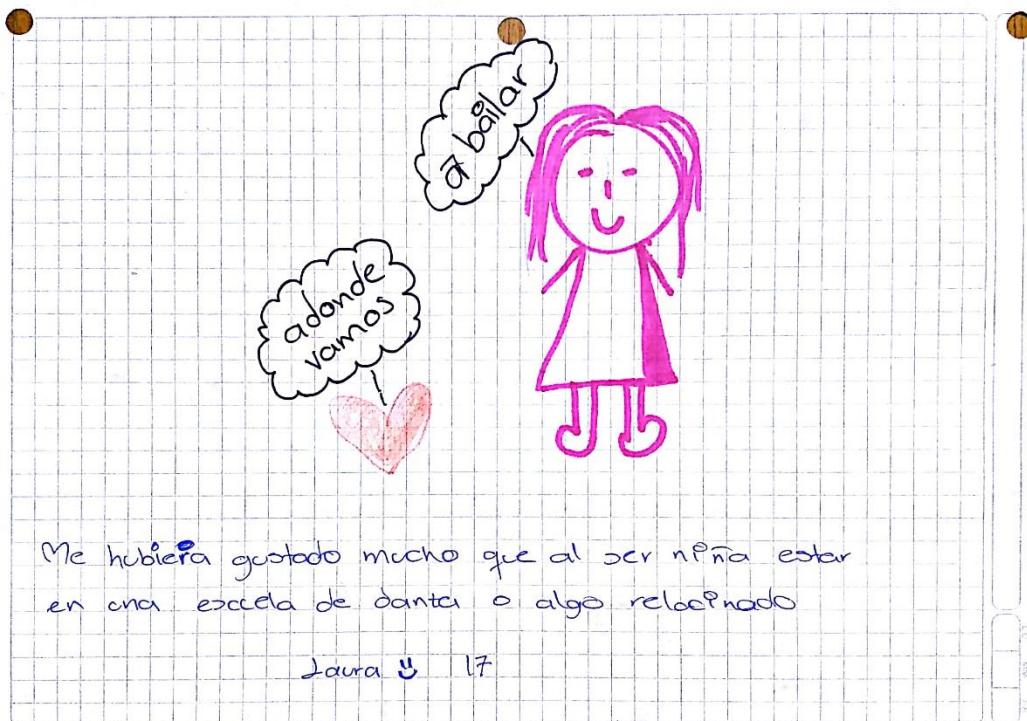 a bailar
adonde
vamos
Me hubiera gustado mucho que al ser niña estar
en una escuela de danta o algo relacinado
Laura 17